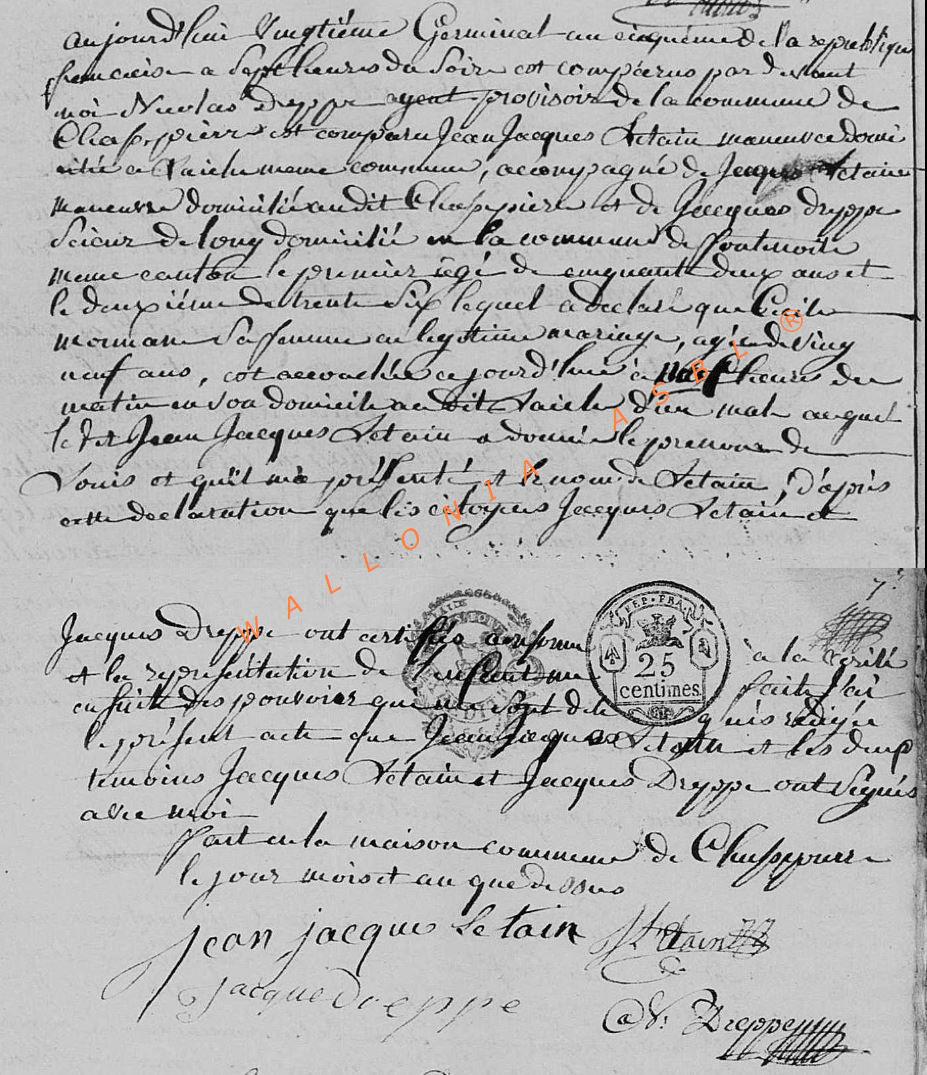 aujourd'hui vingtiéme Germinal an cinquéme de la republique
francaise a sept heures du Soire est comparus par devant
moi Nicolas Dreppe agent provisoir de la commune de
Chassepierre est comparu Jean Jacques Letain maneuvre domi
cilié a Laiche meme commune, accompagné de Jacques Letain
maneuvre domicilié audit Chassepierre et de Jacques dreppe
Scieur de long domicilié en la commune de ffontenoile
meme canton le premier agé de cinquante deux ans et
le deuxiéme de trente Six lequel a declaré que Cecile
mormann Sa femme en legitime mariage, agée de Ving
neuf ans, est accouchée ce jourd'hui à neuf heures du
matin en son domicile audit Laiche d'un male auquel
ledit Jean Jacques Letain a donné le prenom de
Louis et qu'il m'a présenté et le nom de Letain, d'après
cette declaration que les citoyens Jacques Letain et
7
Jacques Dreppe ont certifiés conforme à la verité
et la representation de l'enfant me faite J'ai
en suite des pouvoirs que me sont delegués redigée
le présent acte que Jean Jacques Letain et les deux
temoins Jacques Letain et Jacques Dreppe ont Signés
avec moi
ffait en la maison commune de Chassepierre
le jour mois et an que dessus
jean jacque letain
J Letain
Jacque Dreppe
N: Dreppe
REP. FRA.
25
centimes
WALLONIA ASBL ®